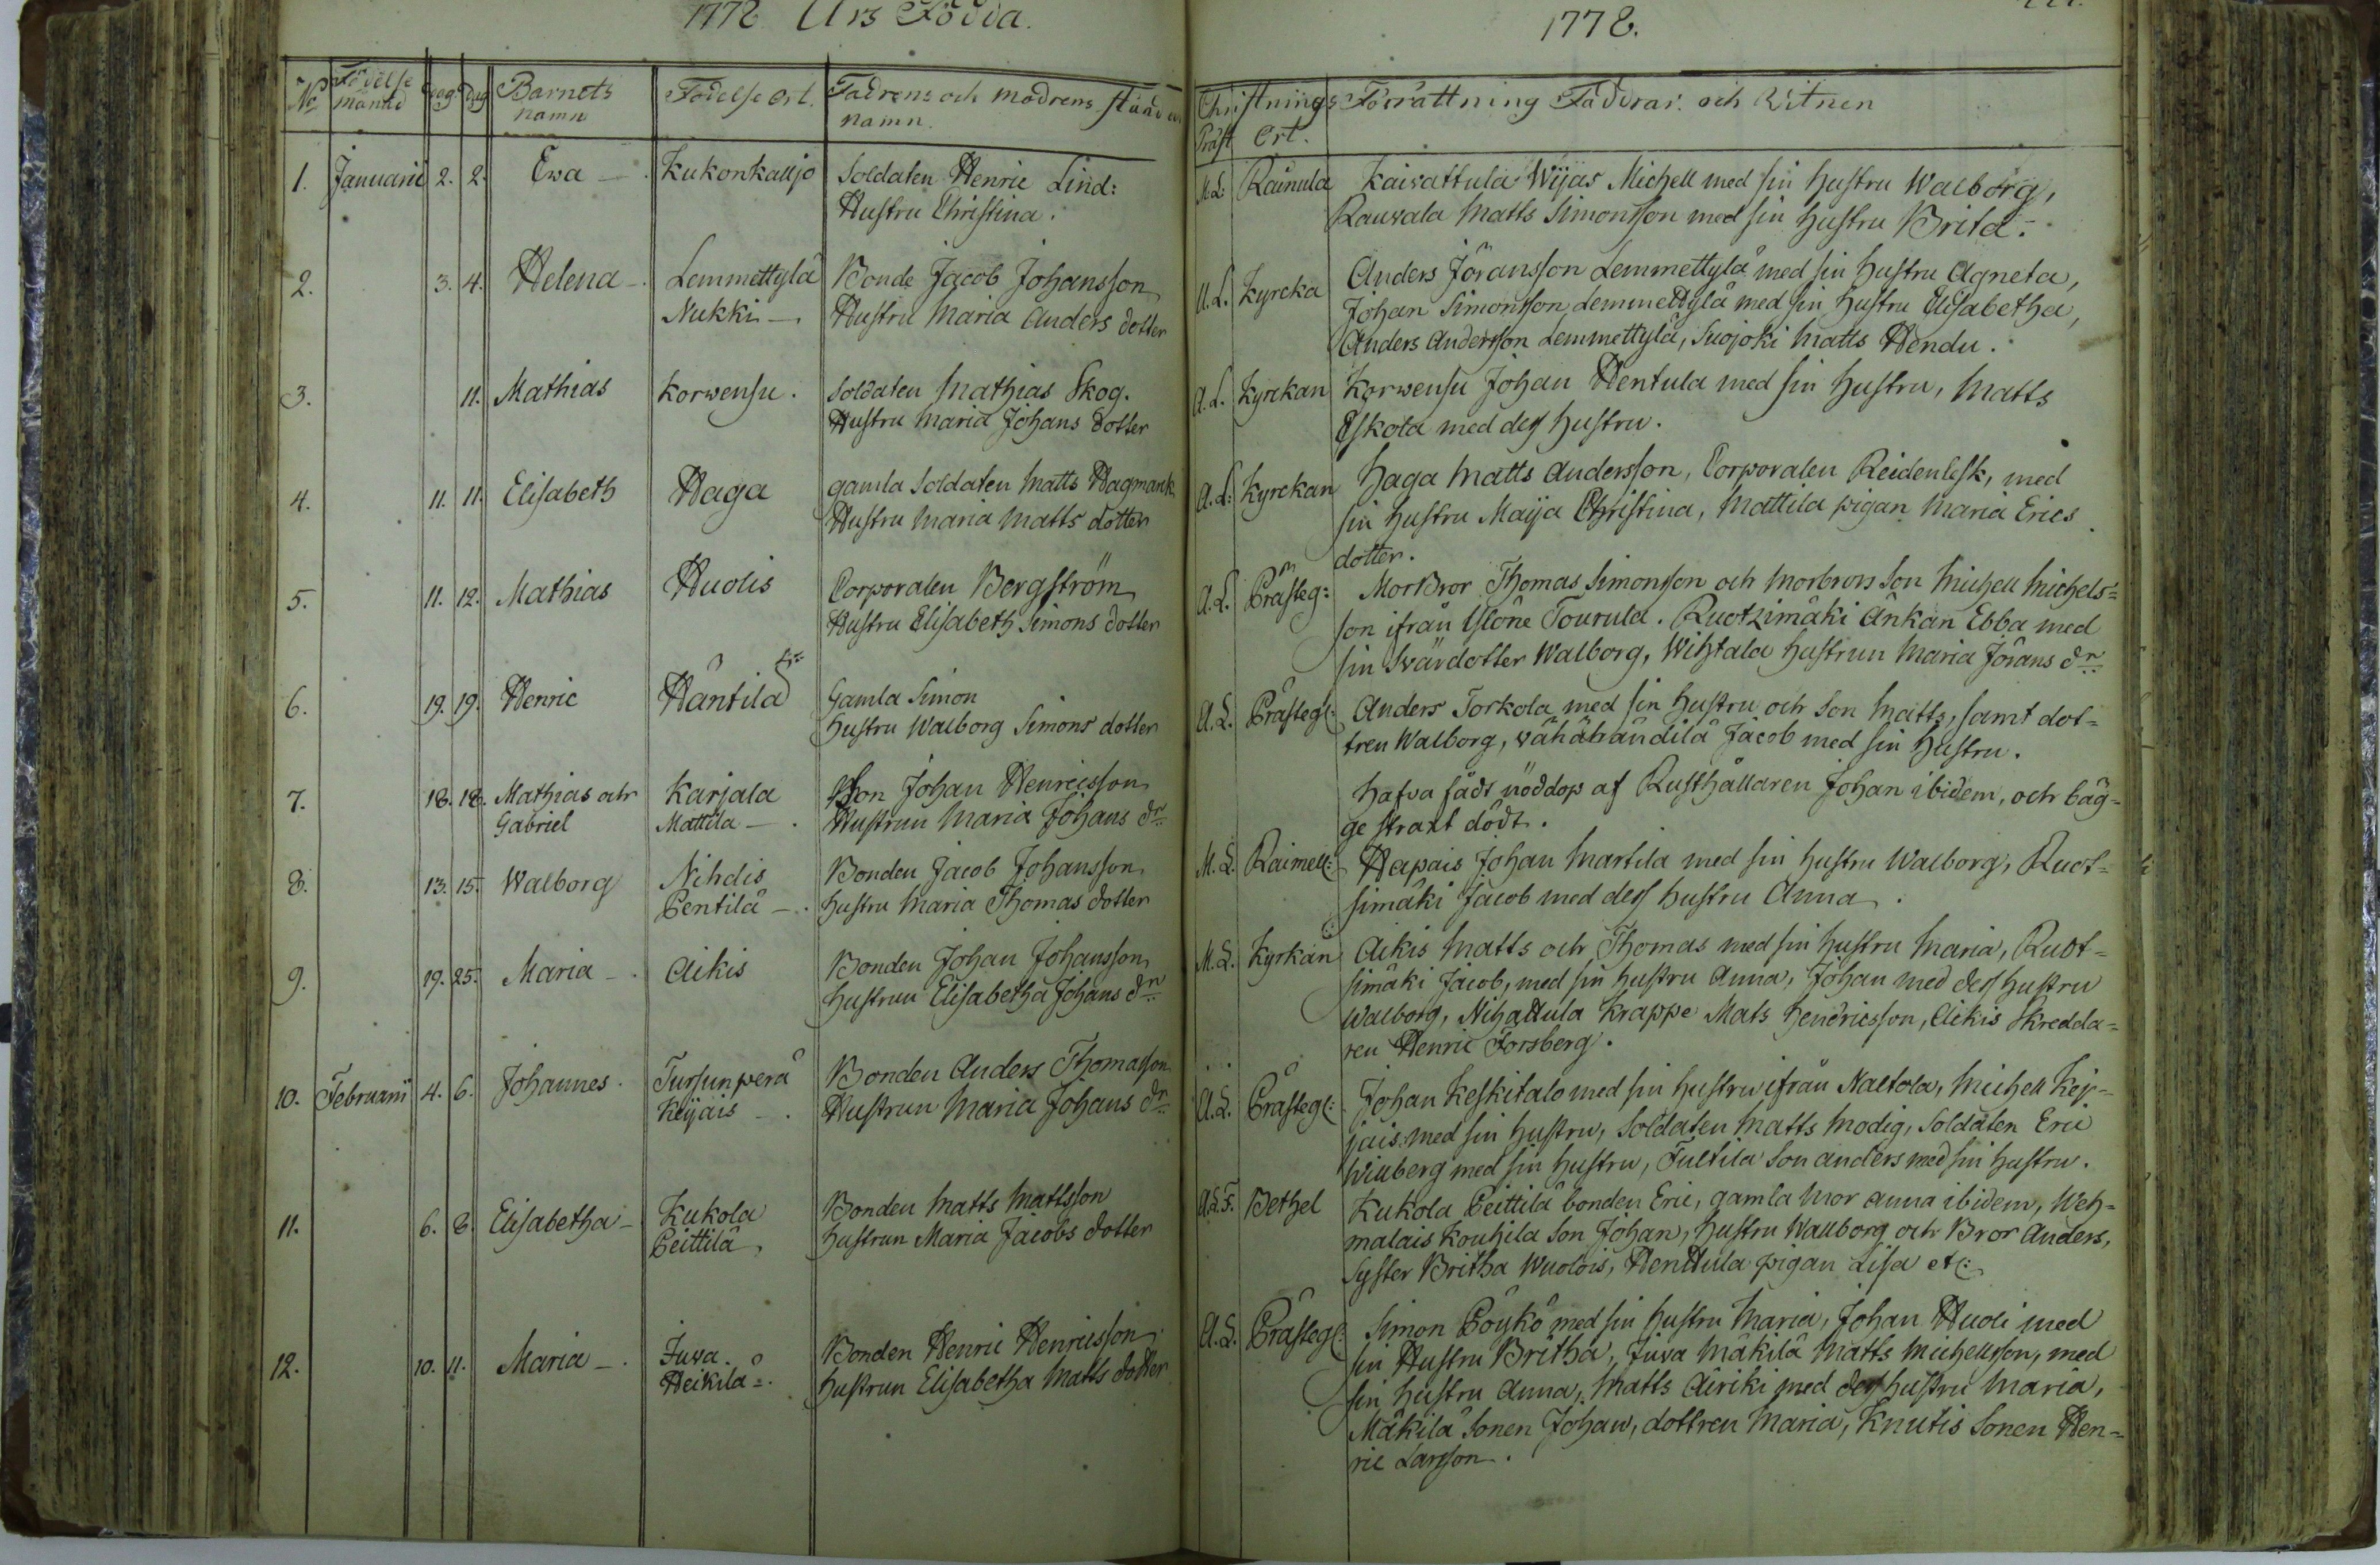 1778 Års Födda.
No Födelse månad dag dag Barnets namn Födelse Ort. Fadrens och modrens stånd namn.
1. Januarii 2. 2. Ewa - Kukonkalljo Soldaten Henric Lind:
Hustru Christina.
2. 3. 4. Helena - Lemmettylä Bonde Jacob Johansson
Nukki - Hustru Maria Anders dotter
3. 11. Mathias Korwensu. Soldaten Mathias Skog.
Hustru Maria Johans dotter
4. 11. 11. Elisabeth Haga gamla Soldaten Matts Hagmank
Hustru Maria Matts dotter
5. 11. 12. Mathias Huolis Corporalen Bergström
Hustru Elisabeth Simons dotter
6. 19. 19. Henric Häntilä Gamla Simon
Hustru Walborg Simons dotter
7. 18. 18. Mathias och Karjala Son Johan Henricsson
Gabriel Mattila - Hustrun Maria Johans dr
8. 13. 15. Walborg Nihdis Bonden Jacob Johansson
Pentilä - Hustru Maria Thomas dotter
9. 19. 25. Maria - Aikis Bonden Johan Johansson
hustrun Elisabetha Johans dr
10. Februarii 4. 6. Johannes. Tursunperä Bonden Anders Thomasson
Keijais - Hustrun Maria Johans dr
11. 6. 8. Elisabetha - Kukola Bonden Matts Mattsson
Peittilä, hustrun Maria Jacobs dotter
12. 10. 11. Maria - Juva. Bonden Henric Henricsson
Heikilä -. hustrun Elisabetha Matts dotter
1778.
Christnings Förrättning Faddrar och Witnen
Präst Ort.
M.L: Rainula Kaivattula Wijas Michell med sin hustru Walborg,
Rauvala Matts Simonsson med sin hustru Brita.
A.L. Kyrcka Anders Jöransson Lemmettylä med sin hustru Agneta,
Johan Simonsson Lemmettylä med sin hustru Elisabetha,
Anders Andersson Lemmettylä, Suojoki Matts Hendu.
A.L. Kyrckan Korwensu Johan Hentula med sin hustru, Matts
Eskola med dess hustru.
A.L: Kyrckan Haga Matts Andersson, Corporalen Reidenlesk, med
sin hustru Maija Christina, Mattila pigan Maria Erics
dotter.
A.L. Prästeg: Morbror Thomas Simonsson och Morbrors Son Michell Michels=
son ifrån Tourula. Ruotzimäki Änkan Ebba med
sin Swärdotter Walborg, Wihtala hustrun Maria Jörans dr
A.L. Prästeg: Anders Torkola med sin hustru och Son Matts, samt dot=
tren Walborg, wähähändilä Jacob med sin hustru.
hafva fådt nöddop af Rusthållaren Johan ibidem, och båg=
ge straxt dödt.
M.L. Raimell: Hapais Johan Martila med sin hustru Walborg, Ruot=
simäki Jacob med dess hustru Anna.
M.L. Kyrkan Aikis Matts och Thomas med sin hustru Maria, Ruot=
simäki Jacob, med sin hustru Anna, Johan med dess hustru
Walborg, Nihattula Krappe Mats Hendricsson, Aikis Skredda=
ren Henric Forsberg.
A.L. Prästeg: Johan Keskitalo med sin hustru ifrån Naltola, Michell Kej=
jais med sin hustru, Soldaten Matts Modig, Soldaten Eric
Winberg med sin hustru, Tultila Son Anders med sin hustru.
A.L.F. Bethel Kukola Peittilä bonden Eric, gamla Mor Anna ibidem, Weh=
malais Kouhila Son Johan, hustru Walborg och Bror Anders,
Syster Britha Wuolois, Henttula pigan Lisa etc:
A.L. Prästeg: Simon Pöykö med sin hustru Maria, Johan Huoli med
sin Hustru Britha, Juva Mäkilä Matts Michellsson, med
sin hustru Anna, Matts Äiriki med dess hustru Maria,
Mäkilä Sonen Johan, dottren Maria, Knutis Sonen Hen=
ric Larsson.